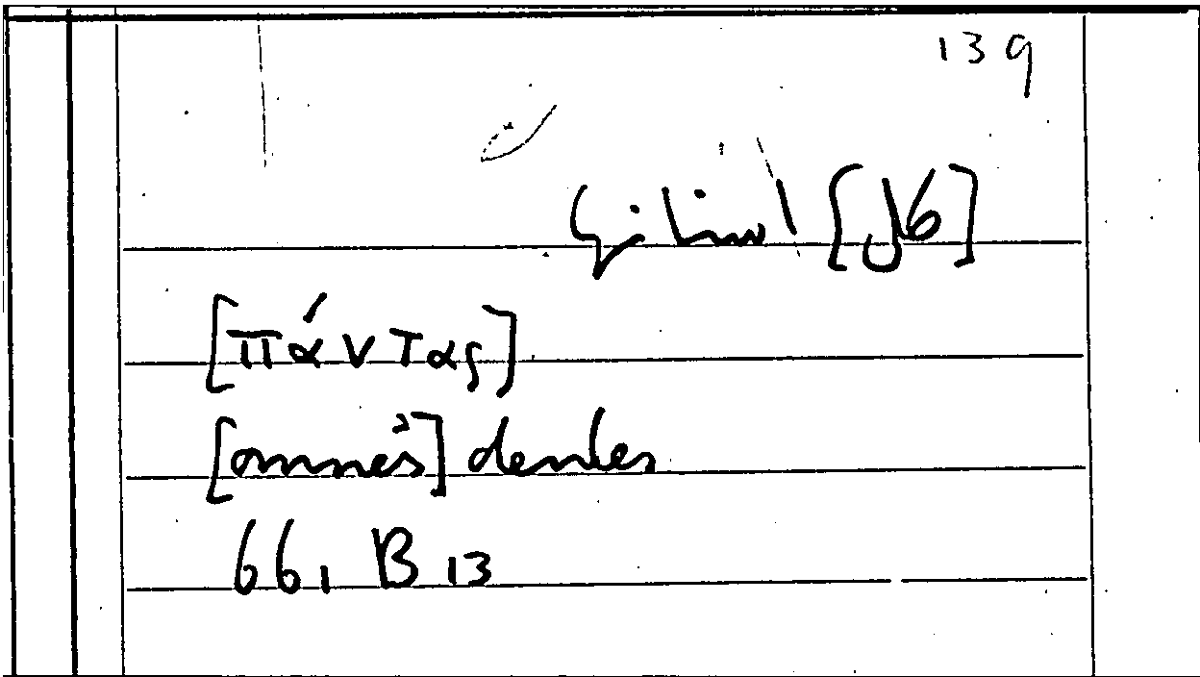 139
[كل]
[πάντας]
[omnes] dentes
661 B 13